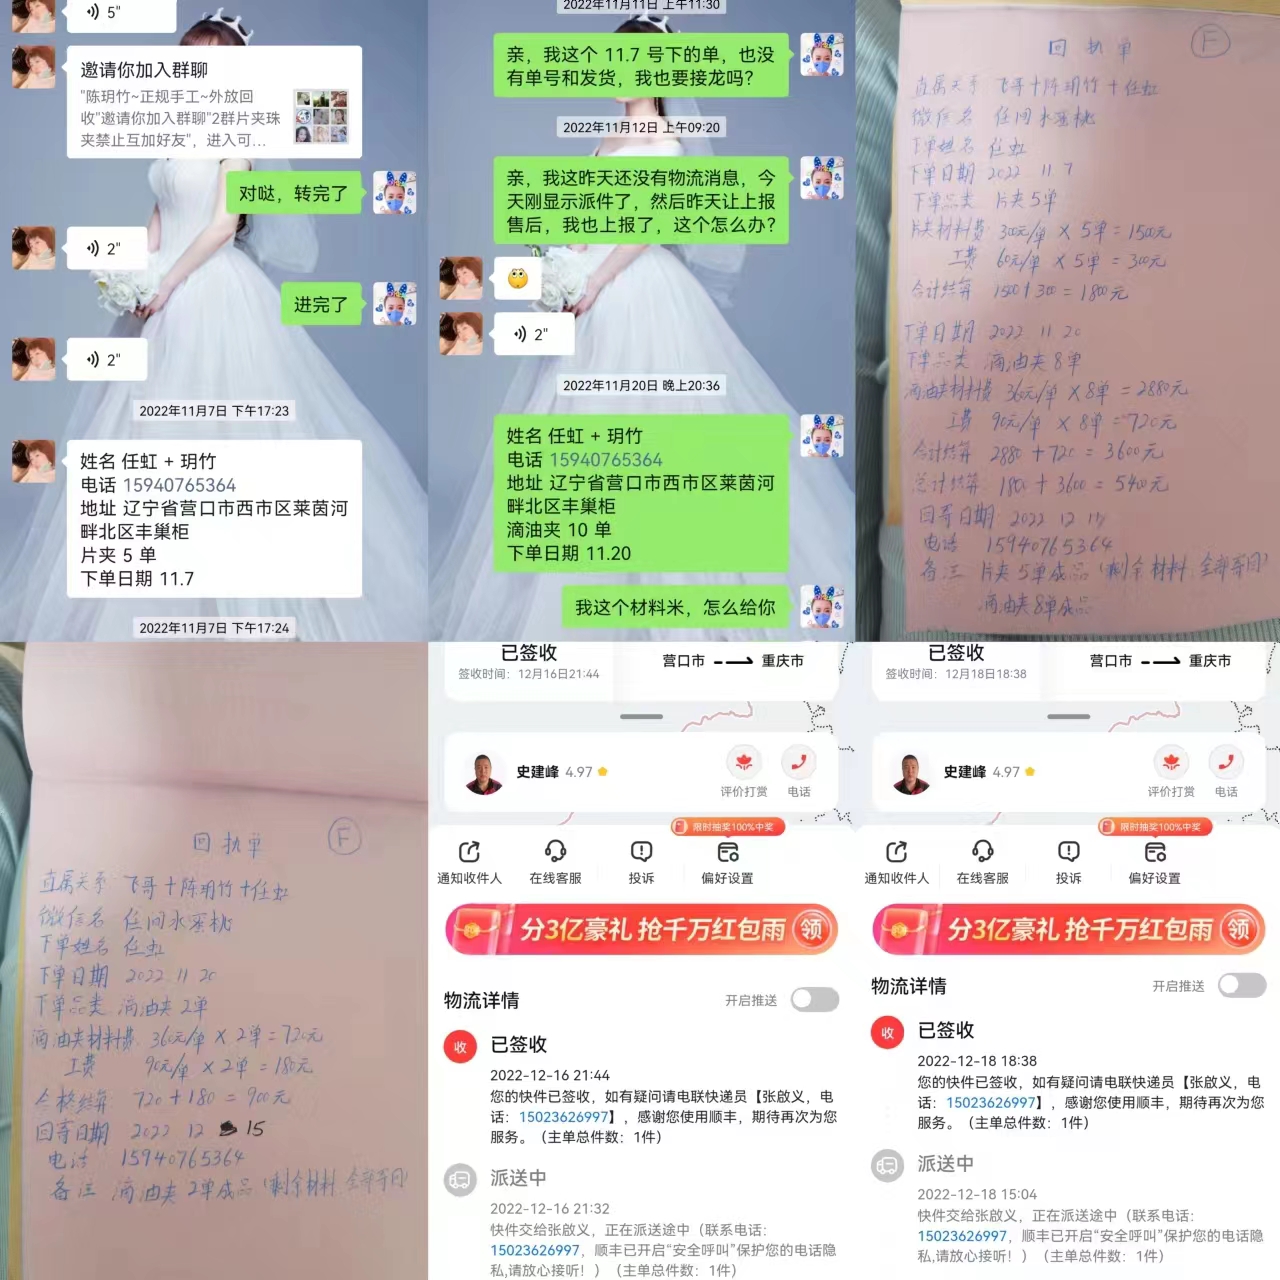 5"
邀请你加入群聊
"陈玥竹~正规手工~外放回
收"邀请你加入群聊"2群片夹珠
夹禁止互加好友"，进入可...
对哒，转完了
2"
进完了
2"
2022年11月7日 下午17:23
姓名 任虹 + 玥竹
电话 15940765364
地址 辽宁省营口市西市区莱茵河
畔北区丰巢柜
片夹 5 单
下单日期 11.7
2022年11月7日 下午17:24
2022年11月11日 上午11:30
亲，我这个 11.7 号下的单，也没
有单号和发货，我也要接龙吗？
2022年11月12日 上午09:20
亲，我这昨天还没有物流消息，今
天刚显示派件了，然后昨天让上报
售后，我也上报了，这个怎么办？
2"
2022年11月20日 晚上20:36
姓名 任虹 + 玥竹
电话 15940765364
地址 辽宁省营口市西市区莱茵河
畔北区丰巢柜
滴油夹 10 单
下单日期 11.20
我这个材料米，怎么给你
回执单 F
直属关系 飞哥+陈玥竹+任虹
微信名 任间水蜜桃
下单姓名 任虹
下单日期 2022 11 7
下单品类 片夹5单
片夹材料费 300元/单 × 5单 = 1500元
工费 60元/单 × 5单 = 300元
合计结算 1500+300 = 1800元
下单日期 2022 11 20
下单品类 滴油夹8单
滴油夹材料费 360元/单 × 8单 = 2880元
工费 90元/单 × 8单 = 720元
合计结算 2880 + 720 = 3600元
总计结算 1800 + 3600 = 5400元
回寄日期 2022 12 17
电话 15940765364
备注 片夹5单成品（剩余材料全部寄回）
滴油夹8单成品
回执单 F
直属关系 飞哥+陈玥竹+任虹
微信名 任间水蜜桃
下单姓名 任虹
下单日期 2022 11 20
下单品类 滴油夹2单
滴油夹材料费 360元/单 × 2单 = 720元
工费 90元/单 × 2单 = 180元
合格结算 720+180 = 900元
回寄日期 2022 12 15
电话 15940765364
备注 滴油夹2单成品（剩余材料全部寄回）
已签收
签收时间：12月16日21:44
营口市
重庆市
史建峰 4.97
评价打赏
电话
限时抽奖100%中奖
通知收件人
在线客服
投诉
偏好设置
分3亿豪礼 抢千万红包雨 领
物流详情
开启推送
收
已签收
2022-12-16 21:44
您的快件已签收，如有疑问请电联快递员【张啟义，电
话：15023626997】，感谢您使用顺丰，期待再次为您
服务。（主单总件数：1件）
派送中
2022-12-16 21:32
快件交给张啟义，正在派送途中（联系电话：
15023626997，顺丰已开启“安全呼叫”保护您的电话隐
私,请放心接听！）（主单总件数：1件）
已签收
签收时间：12月18日18:38
营口市
重庆市
史建峰 4.97
评价打赏
电话
限时抽奖100%中奖
通知收件人
在线客服
投诉
偏好设置
分3亿豪礼 抢千万红包雨 领
物流详情
开启推送
收
已签收
2022-12-18 18:38
您的快件已签收，如有疑问请电联快递员【张啟义，电
话：15023626997】，感谢您使用顺丰，期待再次为您
服务。（主单总件数：1件）
派送中
2022-12-18 15:04
快件交给张啟义，正在派送途中（联系电话：
15023626997，顺丰已开启“安全呼叫”保护您的电话隐
私,请放心接听！）（主单总件数：1件）